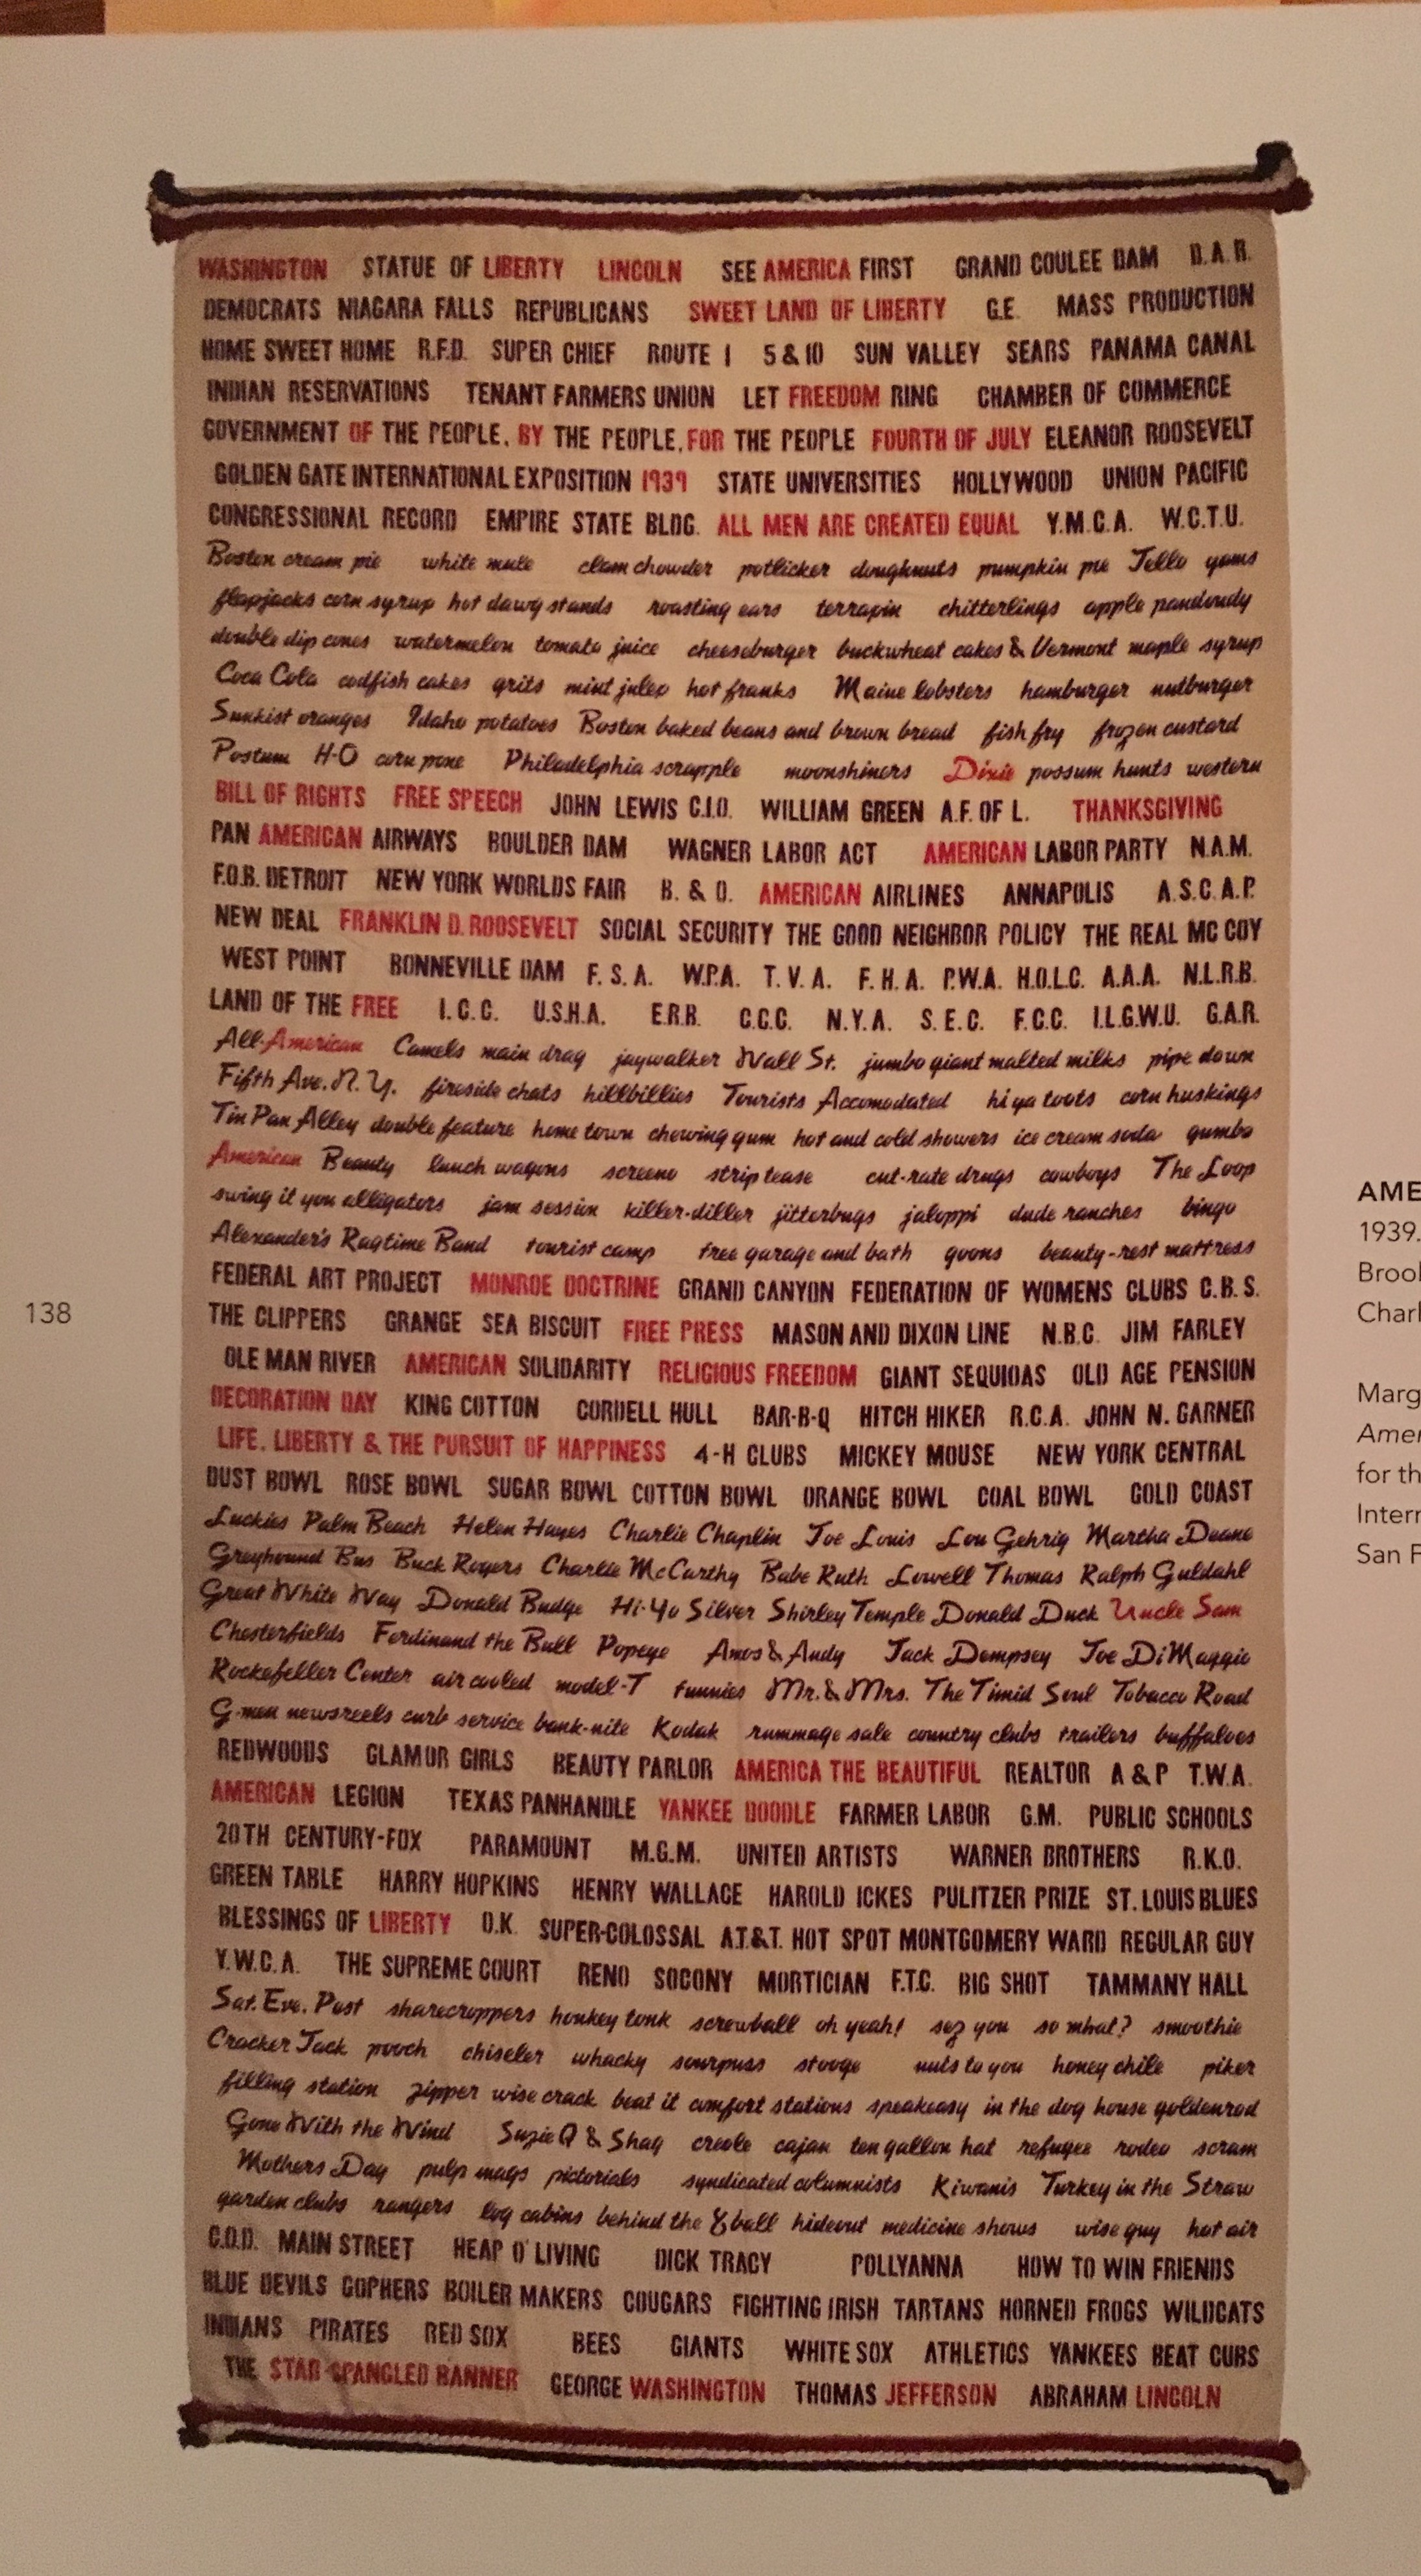 WASHINGTON STATUE OF LIBERTY LINCOLN SEE AMERICA FIRST GRAND COULEE DAM D.A.R.
DEMOCRATS NIAGARA FALLS REPUBLICANS SWEET LAND OF LIBERTY G.E. MASS PRODUCTION
HOME SWEET HOME R.F.D. SUPER CHIEF ROUTE 1 5 & 10 SUN VALLEY SEARS PANAMA CANAL
INDIAN RESERVATIONS TENANT FARMERS UNION LET FREEDOM RING CHAMBER OF COMMERCE
GOVERNMENT OF THE PEOPLE, BY THE PEOPLE, FOR THE PEOPLE FOURTH OF JULY ELEANOR ROOSEVELT
GOLDEN GATE INTERNATIONAL EXPOSITION 1939 STATE UNIVERSITIES HOLLYWOOD UNION PACIFIC
CONGRESSIONAL RECORD EMPIRE STATE BLDG. ALL MEN ARE CREATED EQUAL Y.M.C.A. W.C.T.U.
Boston cream pie white mule clam chowder potlicker doughnuts pumpkin pie Jello yams
flapjacks corn syrup hot dawg stands roasting ears terrapin chitterlings apple pandowdy
double dip cones watermelon tomato juice cheeseburger buckwheat cakes & Vermont maple syrup
Coca Cola codfish cakes grits mint julep hot franks Maine lobsters hamburger nutburger
Sunkist oranges Idaho potatoes Boston baked beans and brown bread fish fry frozen custard
Postum H-O corn pone Philadelphia scrapple moonshiners Dixie possum hunts western
BILL OF RIGHTS FREE SPEECH JOHN LEWIS C.I.O. WILLIAM GREEN A.F. OF L. THANKSGIVING
PAN AMERICAN AIRWAYS BOULDER DAM WAGNER LABOR ACT AMERICAN LABOR PARTY N.A.M.
F.O.B. DETROIT NEW YORK WORLDS FAIR B. & O. AMERICAN AIRLINES ANNAPOLIS A.S.C.A.P.
NEW DEAL FRANKLIN D. ROOSEVELT SOCIAL SECURITY THE GOOD NEIGHBOR POLICY THE REAL MC COY
WEST POINT BONNEVILLE DAM F.S.A. W.P.A. T.V.A. F.H.A. P.W.A. H.O.L.C. A.A.A. N.L.R.B.
LAND OF THE FREE I.C.C. U.S.H.A. E.R.B. C.C.C. N.Y.A. S.E.C. F.C.C. I.L.G.W.U. G.A.R.
All-American Camels main drag jaywalker Wall St. jumbo giant malted milks pipe down
Fifth Ave. N.Y. fireside chats hillbillies Tourists Accomodated hi ya toots corn huskings
Tin Pan Alley double feature home town chewing gum hot and cold showers ice cream soda gumbo
American Beauty lunch wagons screeno strip tease cut-rate drugs cowboys The Loop
swing it you alligators jam session killer-diller jitterbugs jaloppi dude ranches bingo
Alexander's Ragtime Band tourist camp free garage and bath goons beauty-rest mattress
FEDERAL ART PROJECT MONROE DOCTRINE GRAND CANYON FEDERATION OF WOMENS CLUBS C.B.S.
THE CLIPPERS GRANGE SEA BISCUIT FREE PRESS MASON AND DIXON LINE N.B.C. JIM FARLEY
OLE MAN RIVER AMERICAN SOLIDARITY RELIGIOUS FREEDOM GIANT SEQUIOAS OLD AGE PENSION
DECORATION DAY KING COTTON CORDELL HULL BAR-B-Q HITCH HIKER R.C.A. JOHN N. GARNER
LIFE, LIBERTY & THE PURSUIT OF HAPPINESS 4-H CLUBS MICKEY MOUSE NEW YORK CENTRAL
DUST BOWL ROSE BOWL SUGAR BOWL COTTON BOWL ORANGE BOWL COAL BOWL GOLD COAST
Luckies Palm Beach Helen Hayes Charlie Chaplin Joe Louis Lou Gehrig Martha Deane
Greyhound Bus Buck Rogers Charlie McCarthy Babe Ruth Lowell Thomas Ralph Guldahl
Great White Way Donald Budge Hi-Yo Silver Shirley Temple Donald Duck Uncle Sam
Chesterfields Ferdinand the Bull Popeye Amos & Andy Jack Dempsey Joe DiMaggio
Rockefeller Center air cooled model-T funnies Mr. & Mrs. The Timid Soul Tobacco Road
G-men newsreels curb service bank-nite Kodak rummage sale country clubs trailers buffaloes
REDWOODS GLAMOR GIRLS BEAUTY PARLOR AMERICA THE BEAUTIFUL REALTOR A & P T.W.A.
AMERICAN LEGION TEXAS PANHANDLE YANKEE DOODLE FARMER LABOR G.M. PUBLIC SCHOOLS
20TH CENTURY-FOX PARAMOUNT M.G.M. UNITED ARTISTS WARNER BROTHERS R.K.O.
GREEN TABLE HARRY HOPKINS HENRY WALLACE HAROLD ICKES PULITZER PRIZE ST. LOUIS BLUES
BLESSINGS OF LIBERTY O.K. SUPER-COLOSSAL A.T.&T. HOT SPOT MONTGOMERY WARD REGULAR GUY
Y.W.C.A. THE SUPREME COURT RENO SOCONY MORTICIAN F.T.C. BIG SHOT TAMMANY HALL
Sat. Eve. Post sharecroppers honkey tonk screwball oh yeah! sez you so what? smoothie
Cracker Jack pooch chiseler whacky sourpuss stooge nuts to you honey chile piker
filling station zipper wise crack beat it comfort stations speakeasy in the dog house goldenrod
Gone With the Wind Suzie Q & Shag creole cajan ten gallon hat refugee rodeo scram
Mothers Day pulp mags pictorials syndicated columnists Kiwanis Turkey in the Straw
garden clubs rangers log cabins behind the 8 ball hideout medicine shows wise guy hot air
C.O.D. MAIN STREET HEAP O' LIVING DICK TRACY POLLYANNA HOW TO WIN FRIENDS
BLUE DEVILS GOPHERS BOILER MAKERS COUGARS FIGHTING IRISH TARTANS HORNED FROGS WILDCATS
INDIANS PIRATES RED SOX BEES GIANTS WHITE SOX ATHLETICS YANKEES BEAT CUBS
THE STAR SPANGLED BANNER GEORGE WASHINGTON THOMAS JEFFERSON ABRAHAM LINCOLN
138
AME
1939.
Brool
Charl
Marg
Amer
for th
Intern
San F